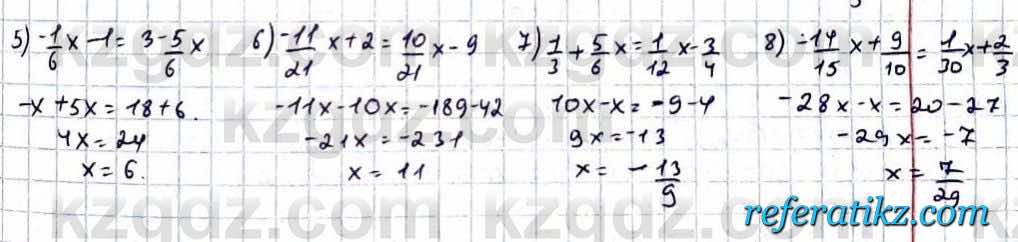 5) -1/6 x - 1 = 3 - 5/6 x
-x + 5x = 18 + 6.
4x = 24
x = 6.
6) -11/21 x + 2 = 10/21 x - 9
-11x - 10x = -189 - 42
-21x = -231
x = 11
7) 1/3 + 5/6 x = 1/12 x - 3/4
10x - x = -9 - 4
9x = -13
x = -13/9
8) -14/15 x + 9/10 = 1/30 x + 2/3
-28x - x = 20 - 27
-29x = -7
x = 7/29
referatikz.com